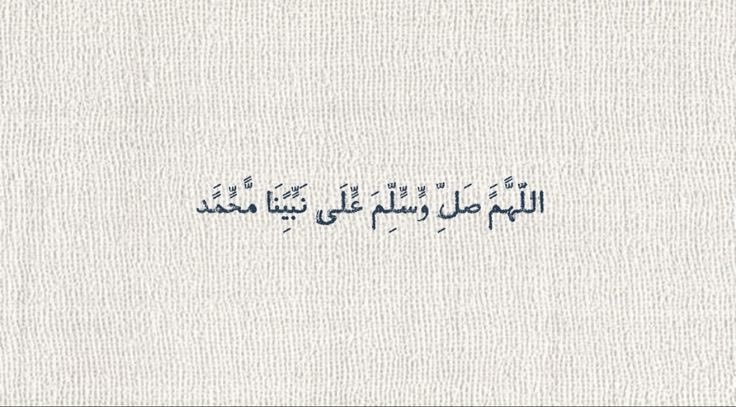 اللّهُمَّ صَلِّ وَسَلِّمَ عَلَى نَبِيِّنَا مُّحَمَّد